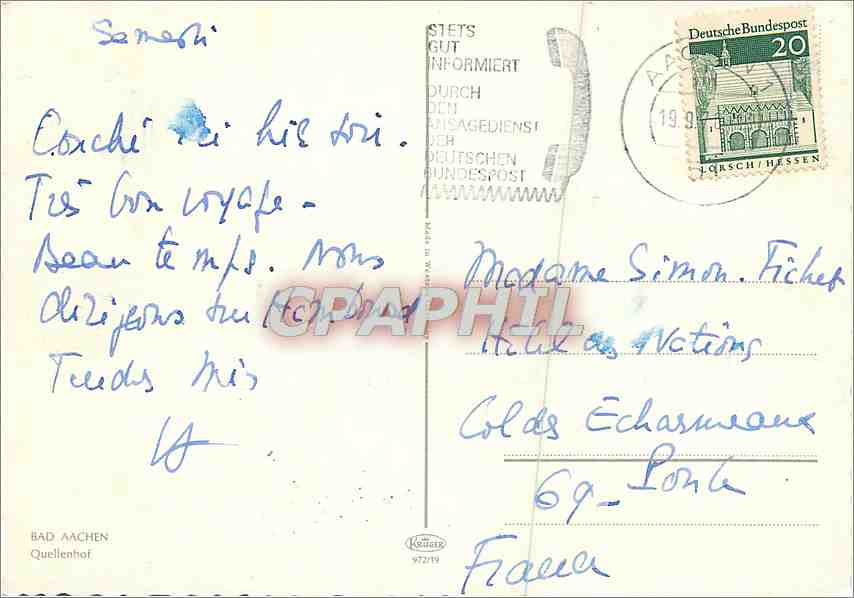 Samedi
Couché ici hier soir.
Très bon voyage -
Beau temps. Nous
dirigeons sur Hambourg
Tendres
BAD AACHEN
Quellenhof
STETS
GUT
INFORMIERT
DURCH
DEN
ANSAGEDIENST
DER
DEUTSCHEN
BUNDESPOST
AAC
19.9
Deutsche Bundespost
20
LORSCH/HESSEN
Made in West
CPAPHIL
Madame Simon. Fichet
Hôtel des Nations
Col des Echarmeaux
69 - Poule
France
KRÜGER
972/19